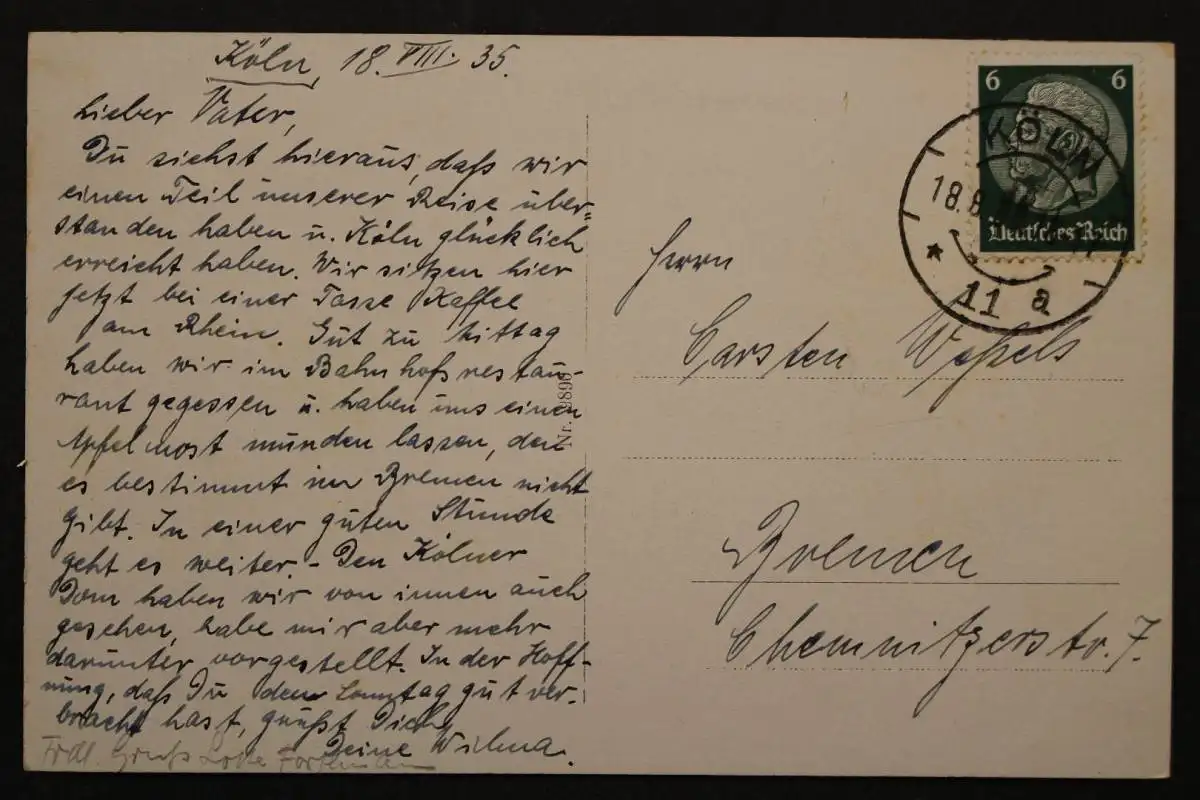 Köln, 18. VIII. 35.
Lieber Vater,
Du siehst hieraus, daß wir
einen Teil unserer Reise über=
standen haben u. Köln glücklich
erreicht haben. Wir sitzen hier
jetzt bei einer Tasse Kaffee
am Rhein. Gut zu Mittag
haben wir im Bahnhofsrestau-
rant gegessen u. haben uns einen
Apfelmost munden lassen, den
es bestimmt in Bremen nicht
gibt. In einer guten Stunde
geht es weiter. - Den Kölner
Dom haben wir von innen auch
gesehen, habe mir aber mehr
darunter vorgestellt. In der Hoff-
nung, daß Du den Sonntag gut ver-
bracht hast, grüßt Dich
Deine Wilma.
Frdl. Gruß Lotte
Nr. 9890
6 6
Deutsches Reich
KÖLN
18.8.
11 a
Herrn
Carsten Weßels
Bremen
Chemnitzerstr. 7.